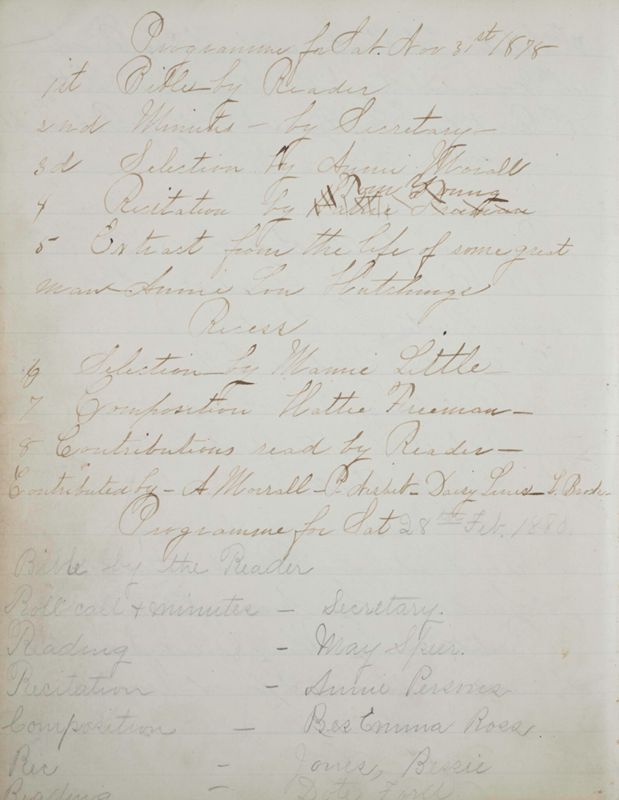 Programme for Sat. Nov 31st 1878
1st Bible by Reader
2nd Minutes – by Secretary –
3d Selection by Annie Morall
Tom Young
4 Recitation by
5 Extract from the life of some great
man Annie Lou Hutchings
Recess
6 Selection by Mamie Little
7 Composition Hattie Freeman –
8 Contributions read by Reader –
Contributed by – A Morrall – P. Nisbet – Daisy – L. Brode
Programme for Sat 28th Feb. 1880.
Bible by the Reader
Roll call & minutes – Secretary.
Reading – May Speer.
Recitation – Annie Persons
Composition – Emma Ross
Rec – Jones, Bessie
Reading –